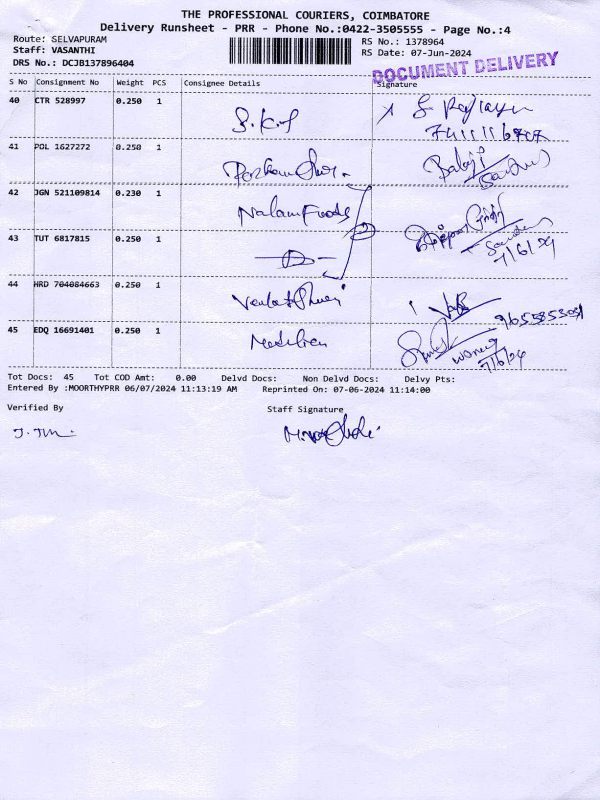 THE PROFESSIONAL COURIERS, COIMBATORE
Delivery Runsheet - PRR - Phone No.:0422-3505555 - Page No.:4
Route: SELVAPURAM
RS No.: 1378964
Staff: VASANTHI
RS Date: 07-Jun-2024
DRS No.: DCJB137896404
DOCUMENT DELIVERY
S No Consignment No Weight PCS Consignee Details Signature
40 CTR 528997 0.250 1 S.K.S
41 POL 1627272 0.250 1 Balaji
42 JGN 521109814 0.230 1 Nalam Foods
43 TUT 6817815 0.250 1 —D— 7/6/24
44 HRD 704084663 0.250 1
45 EDQ 16691401 0.250 1 7/6/24
Tot Docs: 45 Tot COD Amt: 0.00 Delvd Docs: Non Delvd Docs: Delvy Pts:
Entered By :MOORTHYPRR 06/07/2024 11:13:19 AM Reprinted On: 07-06-2024 11:14:00
Verified By Staff Signature